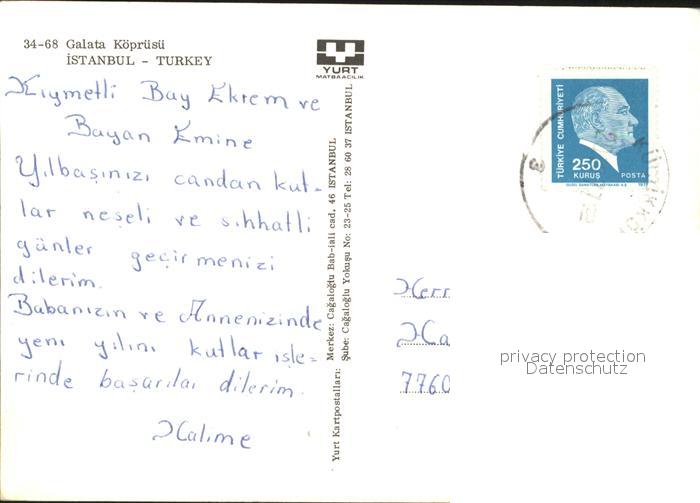 34-68 Galata Köprüsü
İSTANBUL - TURKEY
YURT
MATBAACILIK
Kıymetli Bay Ekrem ve
Bayan Emine
Yılbaşınızı candan kut-
lar neşeli ve sıhhatli
günler geçirmenizi
dilerim.
Babanızın ve Annenizinde
yeni yılını kutlar işle-
rinde başarılaı dilerim.
Halime
Yurt Kartpostalları: Merkez: Cağaloğlu Bab-iali cad, 46 ISTANBUL
Şube: Cağaloğlu Yokuşu No: 23-25 Tel: 28 60 37 ISTANBUL
TÜRKİYE CUMHURİYETİ
250
KURUŞ
POSTA
1977
3
Herr
Ha
7760
privacy protection
Datenschutz